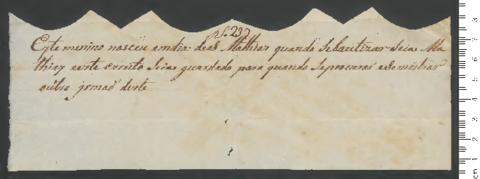 Este menino nasceu em dia de S. Mathias quando se bautizar seia Ma
thias e este escrito seia guardado para quando se procurar e se mostrar
outro irmaõ deste